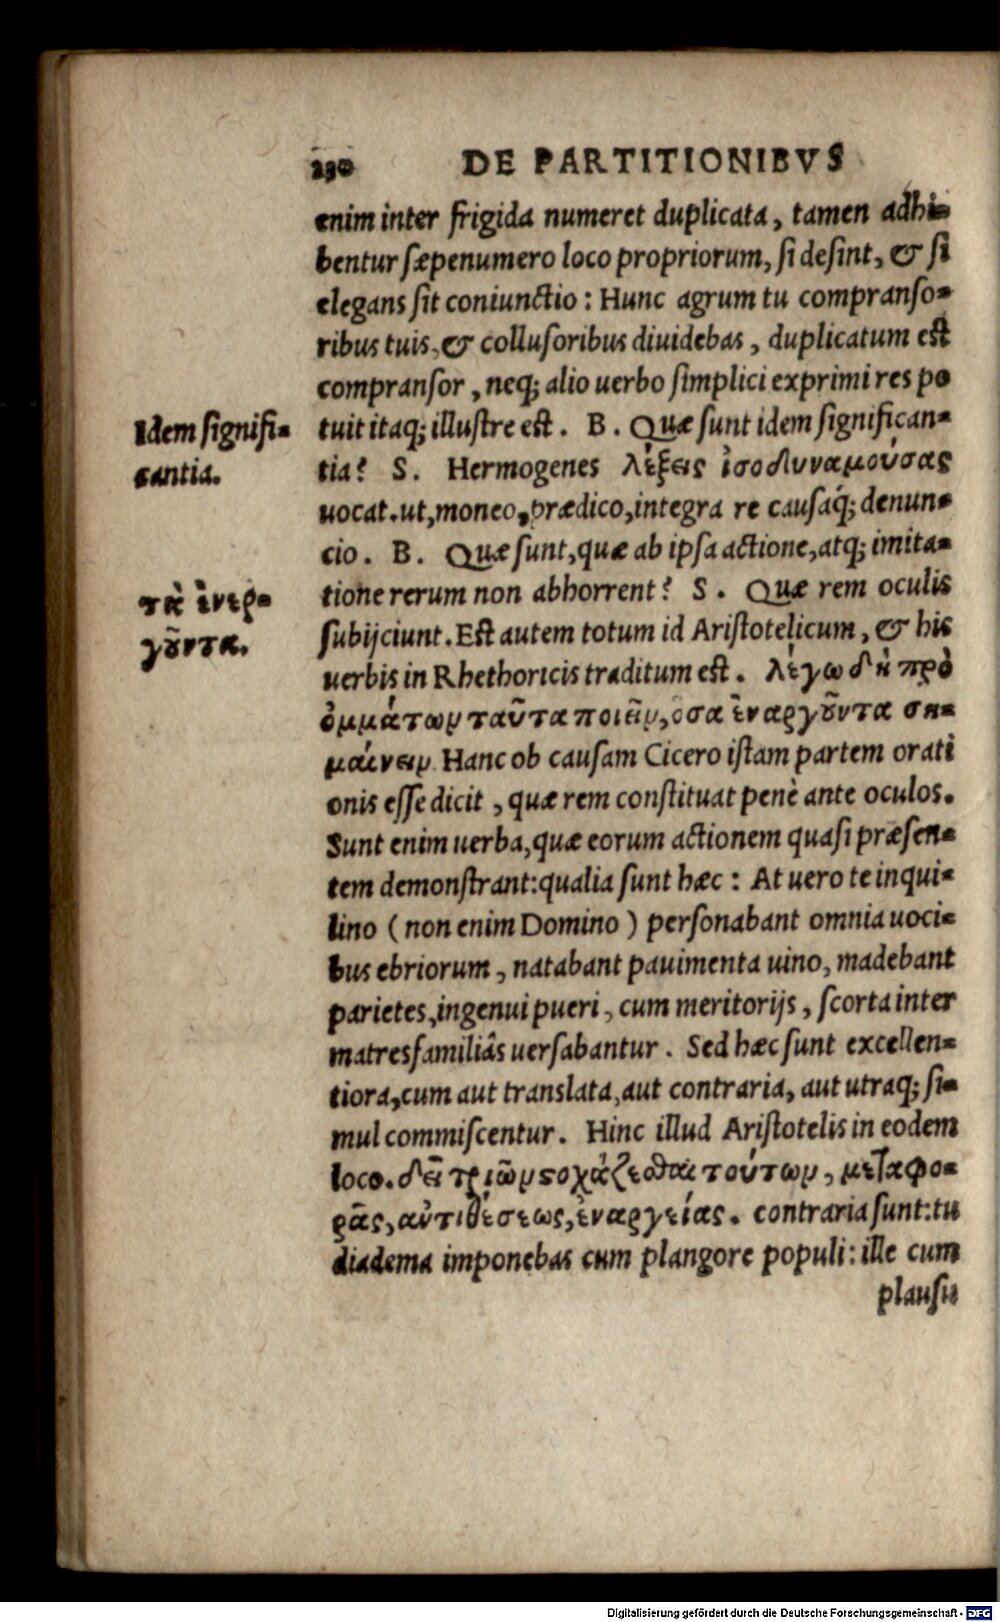 230 DE PARTITIONIBVS
enim inter frigida numeret duplicata, tamen adhi-
bentur sæpenumero loco propriorum, si desint, & si
elegans sit coniunctio: Hunc agrum tu compranso-
ribus tuis, & collusoribus diuidebas, duplicatum est
compransor, neq; alio uerbo simplici exprimi res po
Idem signifi-
cantia.
tuit itaq; illustre est. B. Quæ sunt idem significan-
tia? S. Hermogenes λέξεις ἰσοδυναμούσας
uocat. ut, moneo, prædico, integra re causaq́; denun-
cio. B. Quæ sunt, quæ ab ipsa actione, atq; imita-
τὰ ἐνερ-
γοῦντα.
tione rerum non abhorrent? S. Quæ rem oculis
subijciunt. Est autem totum id Aristotelicum, & his
uerbis in Rhethoricis traditum est. λέγω δὴ πρὸ
ὀμμάτων ταῦτα ποιεῖν, ὅσα ἐναργοῦντα ση-
μαίνειν. Hanc ob causam Cicero istam partem orati
onis esse dicit, quæ rem constituat penè ante oculos.
Sunt enim uerba, quæ eorum actionem quasi præsen-
tem demonstrant: qualia sunt hæc: At uero te inqui-
lino (non enim Domino) personabant omnia uoci-
bus ebriorum, natabant pauimenta uino, madebant
parietes, ingenui pueri, cum meritorijs, scorta inter
matresfamiliâs uersabantur. Sed hæc sunt excellen-
tiora, cum aut translata, aut contraria, aut utraq; si-
mul commiscentur. Hinc illud Aristotelis in eodem
loco. δεῖ τριῶν στοχάζεσθαι τούτων, μεταφο-
ρᾶς, ἀντιθέσεως, ἐναργείας. contraria sunt: tu
diadema imponebas cum plangore populi: ille cum
plausu
Digitalisierung gefördert durch die Deutsche Forschungsgemeinschaft - DFG